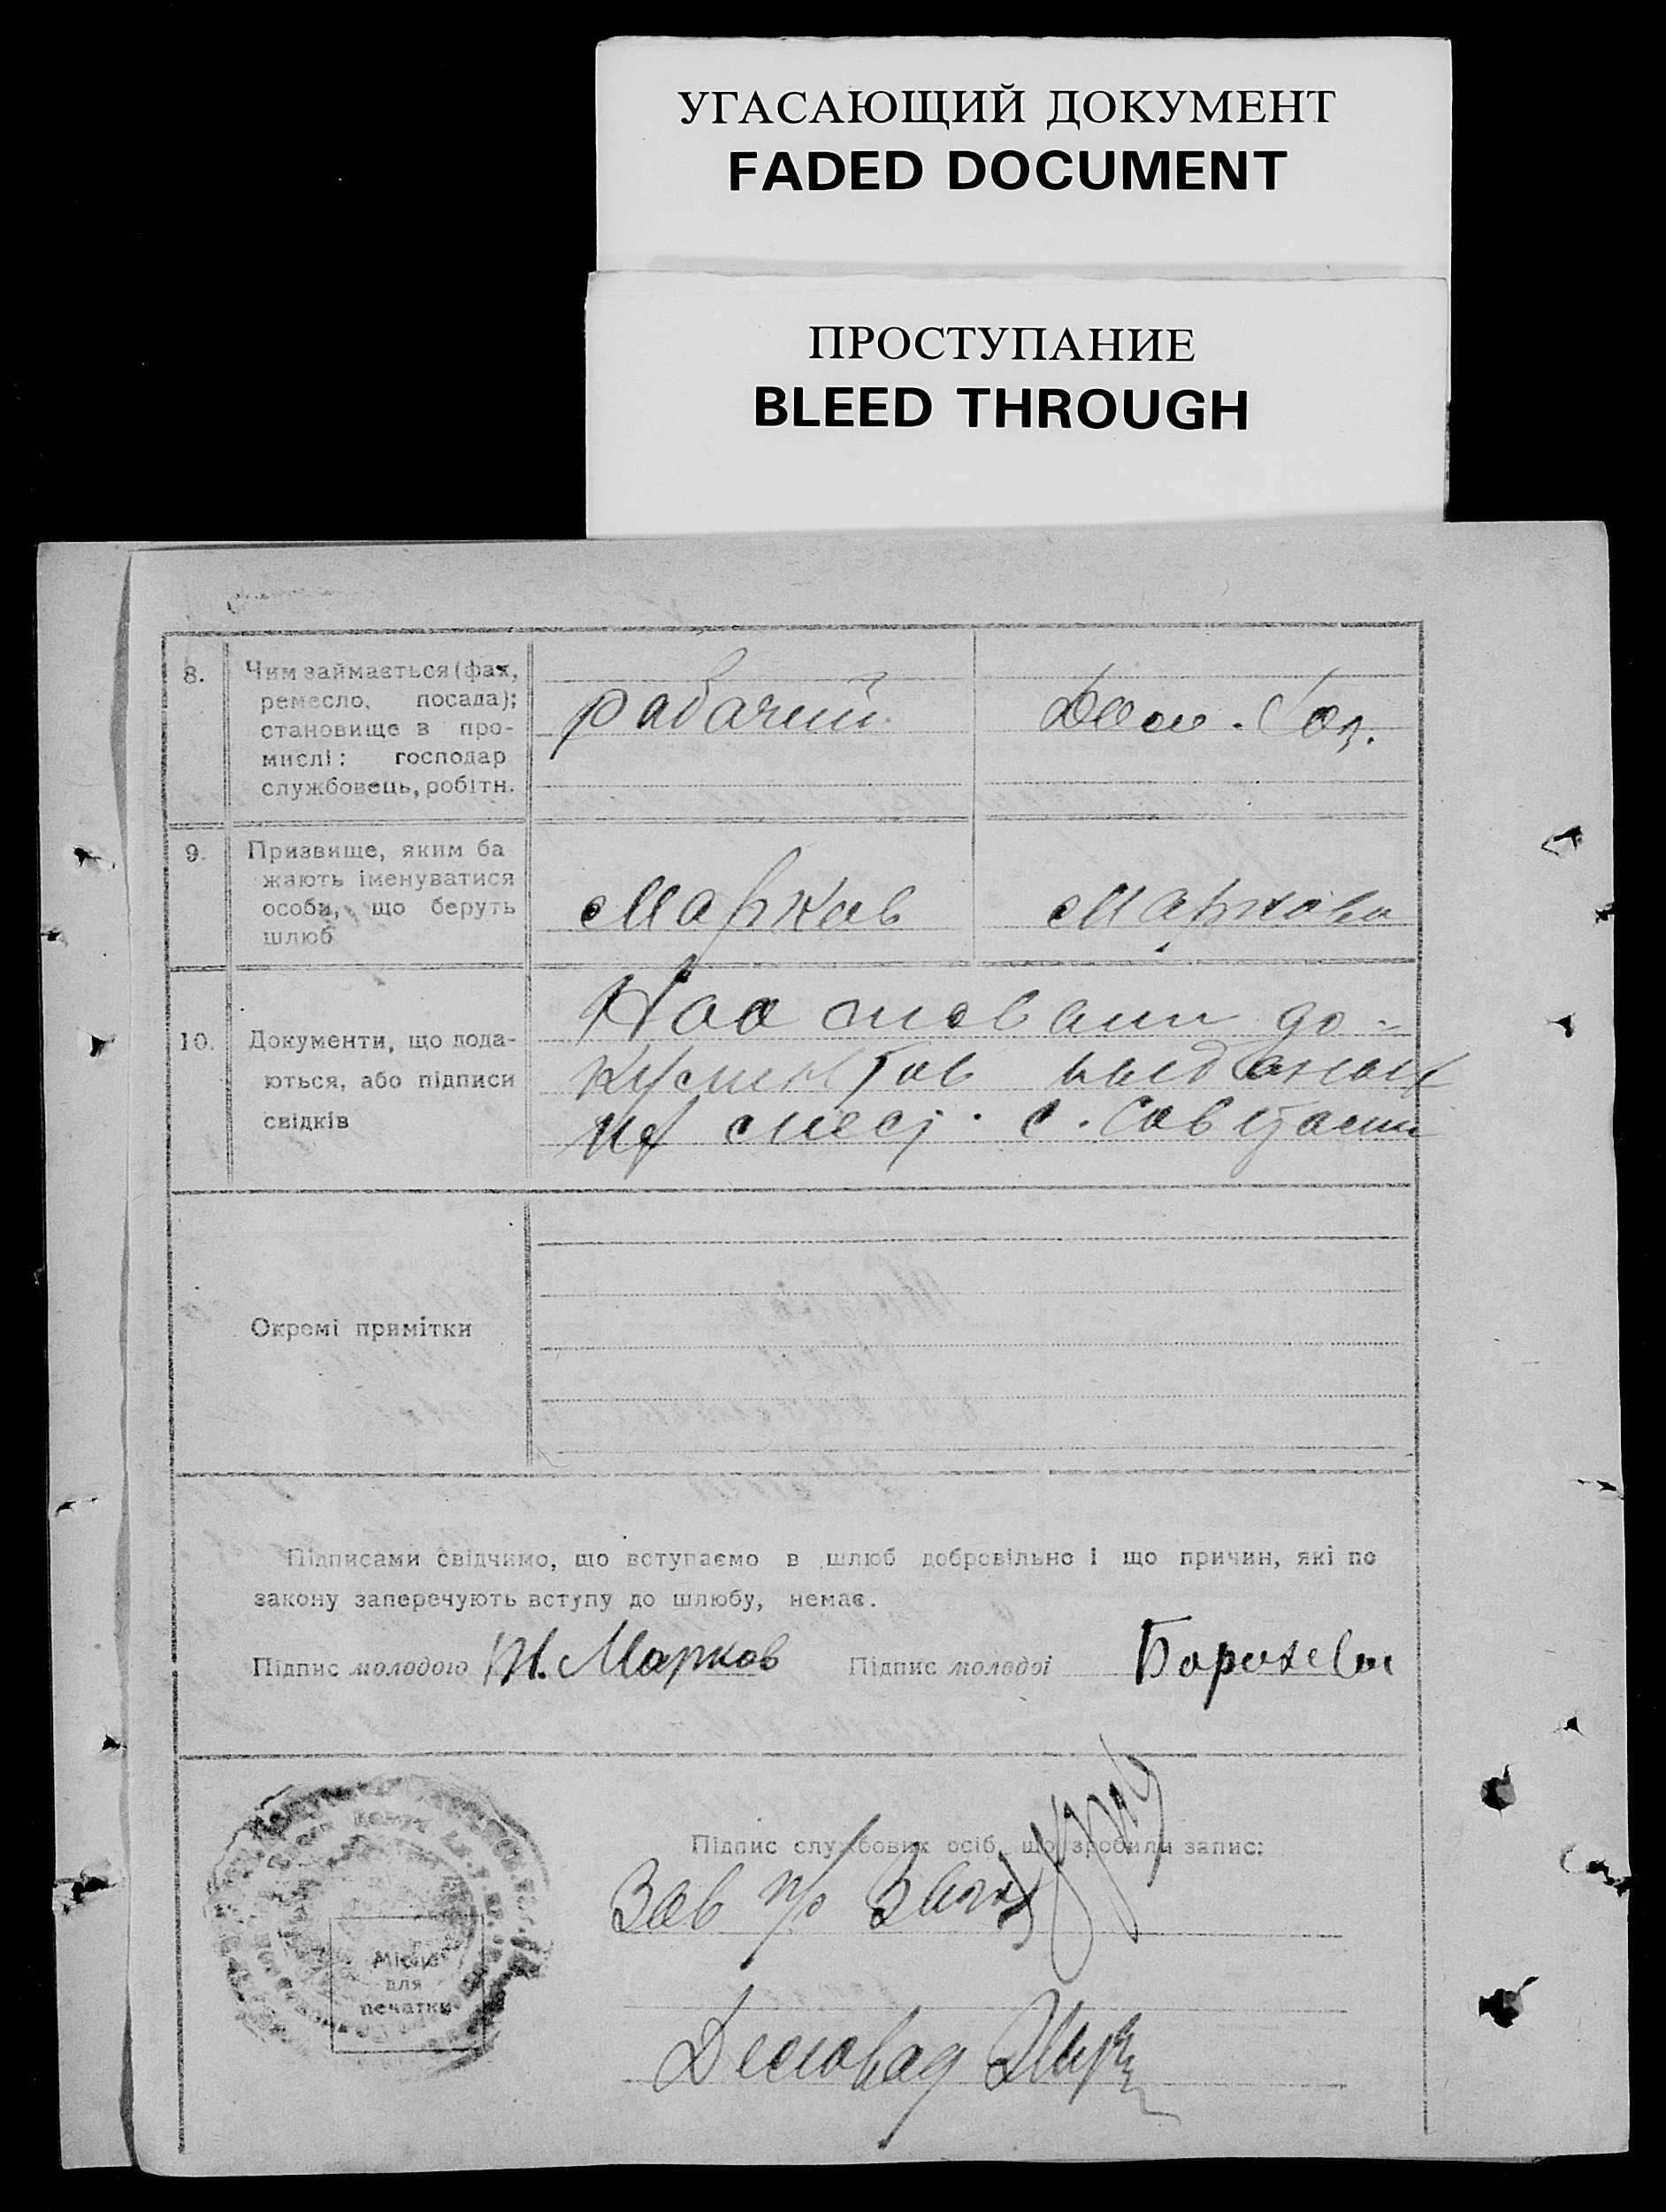 УГАСАЮЩИЙ ДОКУМЕНТ
FADED DOCUMENT
ПРОСТУПАНИЕ
BLEED THROUGH
8.
Чим займається (фах,
ремесло, посада);
становище в про-
мислі: господар
службовець, робітн.
рабачий
Дом. Хоз.
9.
Призвище, яким ба
жають іменуватися
особи, що беруть
шлюб
Марков
Маркова
10.
Документи, що пода-
ються, або підписи
свідків
На основании до-
кументов выданых
с.
Окремі примітки
Підписами свідчимо, що вступаємо в шлюб добровільно і що причин, які по
закону заперечують вступу до шлюбу, немає.
Підпис молодого М. Марков Підпис молодої
Підпис службових осіб, що зробили запис:
Зав п/о Загс
Деловод
Місце
для
печатки